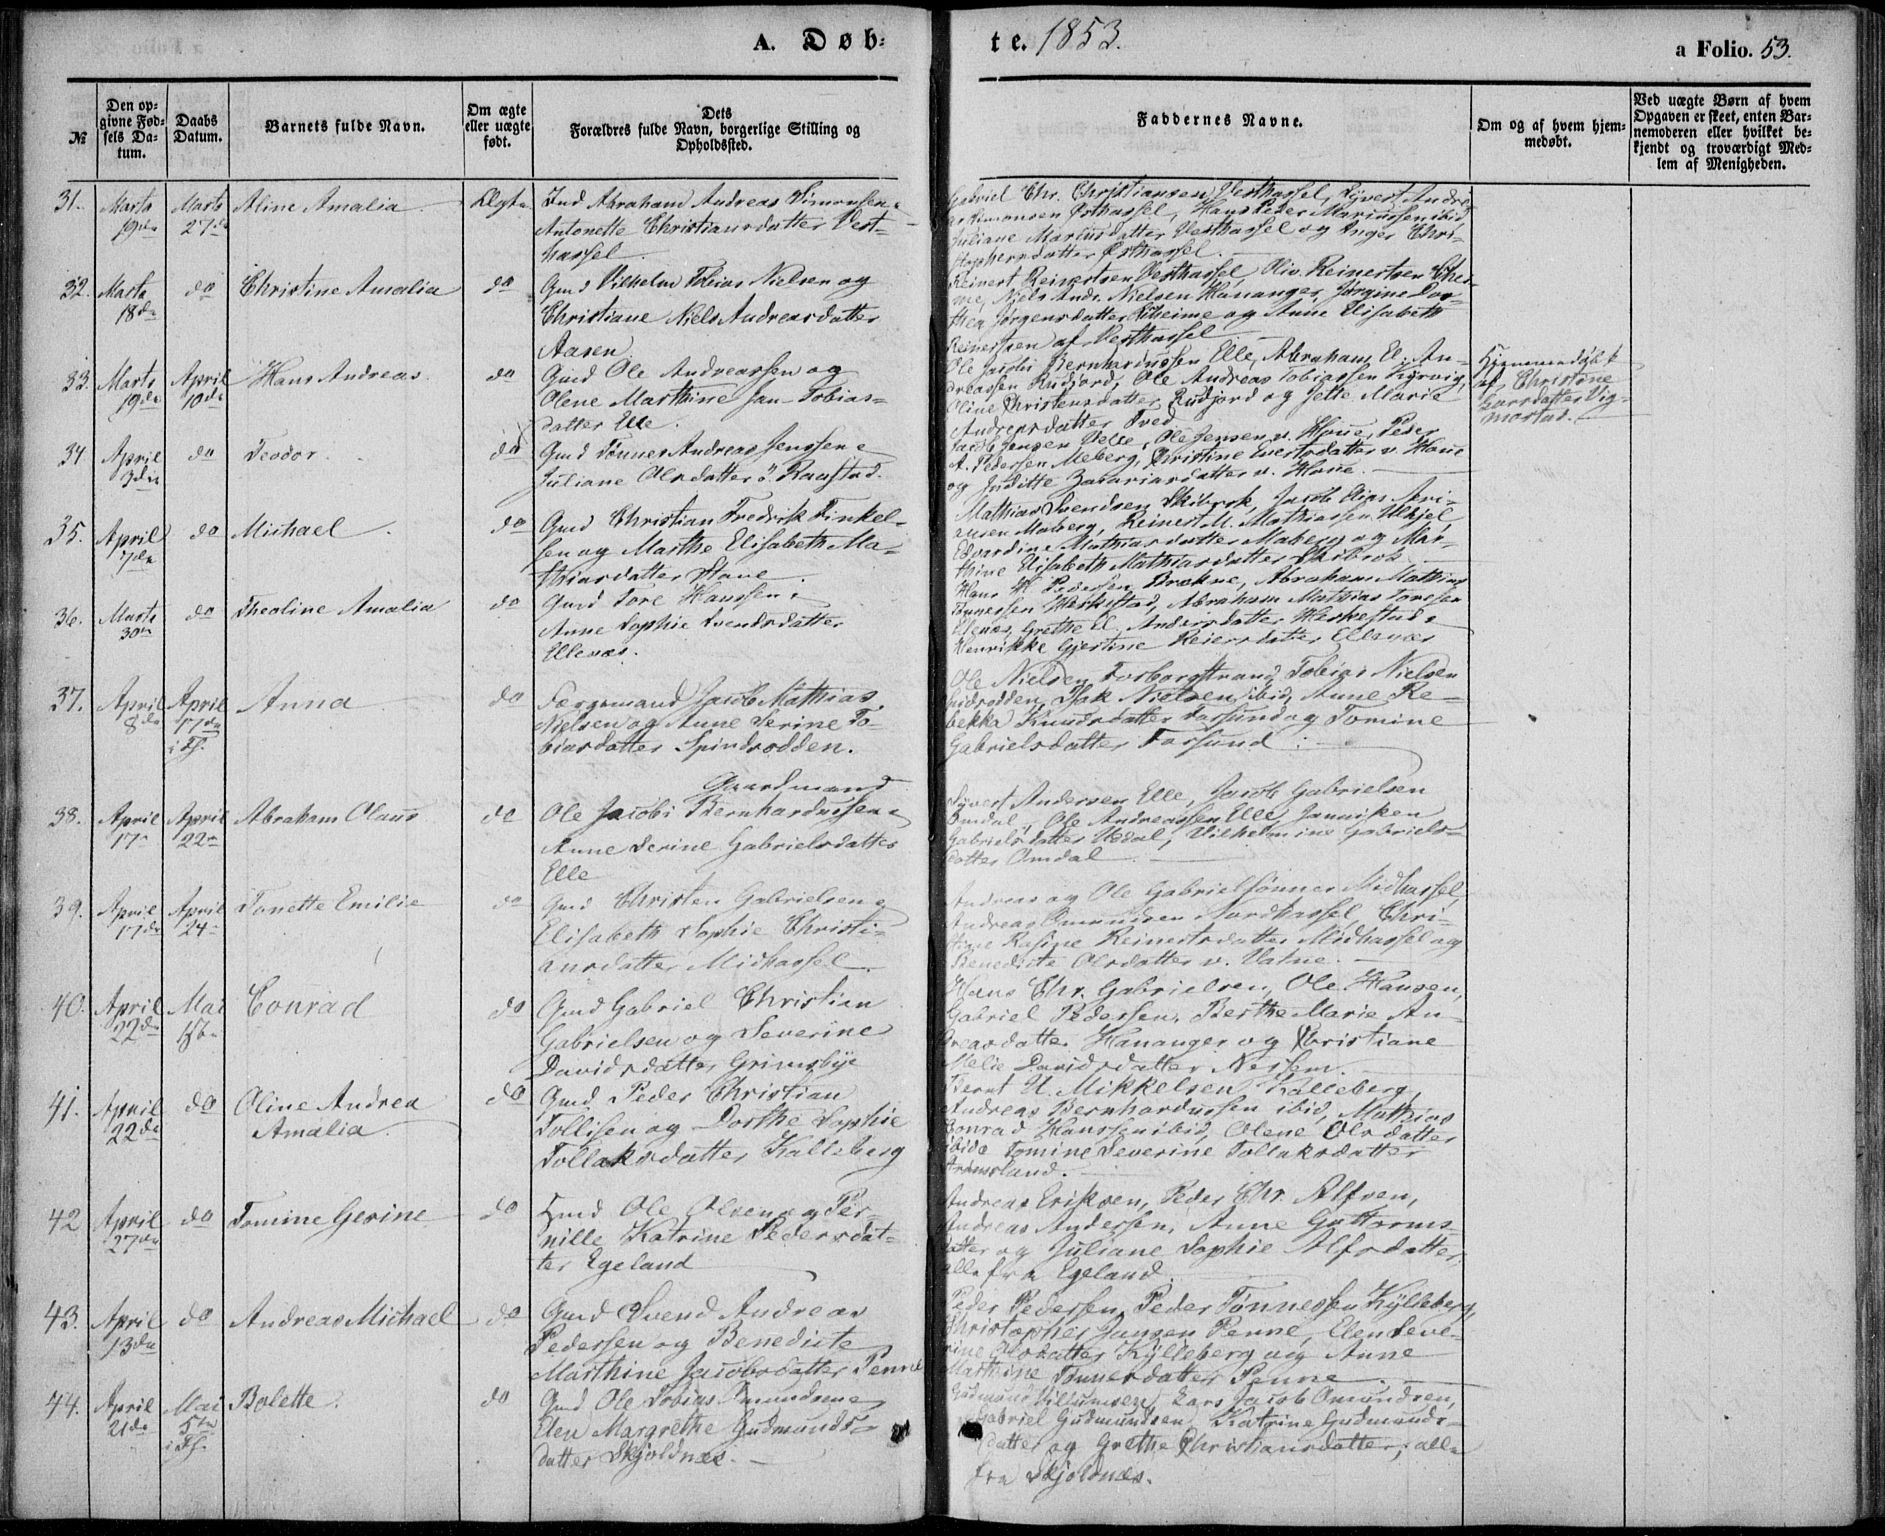 A. Døb-
te. 1853.
a Folio. 53.
№
Den op-
givne Fød-
sels Da-
tum.
Daabs
Datum.
Barnets fulde Navn.
Om ægte
eller uægte
født.
Dets
Forældres fulde Navn, borgerlige Stilling og
Opholdssted.
Faddernes Navne.
Om og af hvem hjem-
medøbt.
Ved uægte Børn af hvem
Opgaven er skeet, enten Bar-
nemoderen eller hvilket be-
kjendt og troværdigt Med-
lem af Menigheden.
31. Marts 19de
Marts 27de
Aline Amalia
Ægte
Ind Abraham Andreas Simonsen
Antonette Christiansdatter Vest-
hassel
Gabriel Chr. Christiansen Vesthassel, Syvert Andre-
as Simonsen Østhassel, Hans Peder Mariussen ibid
Juliane Mariusdatter Vesthassel og Inger Chri-
stophersdatter Østhassel.
32. Marts 18de
do
Christine Amalia
do
Gmd Vilhelm Tobias Nielsen og
Christiane Niels Andreasdatter
Aasen
Reinert Reinertsen Vesthassel, Oliv. Reinertsen
Niels Andr. Nielsen Hananger, Jørgine Dor-
thea Jørgensdatter og Anne Elisabeth
Reinertsen af Vesthassel
33. Marts 19de
April 10de
Hans Andreas
do
Gmd Ole Andreassen og
Olene Marthine Jan Tobias-
datter Elle.
Ole Jacobi Bernhardussen Elle, Abraham El. An-
dreassen Rudjord, Ole Andreas Tobiassen
Oline Christensdatter Rudjord og Jette Marie
Andreasdatter Tved
Hjemmedøbt
af Christine
Larsdatter Vig-
mostad.
34 April 3die
do
Teodor.
do
Gmd Tønnes Andreas Jenssen
Juliane Olsdatter ö. Raustad.
Jacob Jensen Velle, Ole Jensen v. Houe, Peder
A. Pedersen Meberg, Christine datter v. Houe
og Juditte Zacariasdatter v. Houe.
35. April 7de
do
Michael
do
Gmd Christian Fredrik Finkel-
sen og Marthe Elisabeth Ma-
thiasdatter Stave
Mathias Svendsen Skibrok, Jacob Elias
Maberg, Reinert M. Mathiassen
Edvardine Mathiasdatter Maberg og Mar-
thine Elisabeth Mathiasdatter Skibrok
36. Marts 30te
do
Theoline Amalia
do
Gmd Tore Hanssen
Anne Sophie Svendsdatter
Ellenæs.
Hans H. Pedersen Brekne, Abraham Mathias
Tønnessen Heskestad, Abraham Mathias Toresen
Elenæs, Grethe El. Andersdatter Heskestad
Henrikke Gjertine Reiersdatter Ellenæs
37. April 8de
April 17de
i Fs.
Anna
do
Færgemand Jacob Mathias
Nielsen og Anne Serine To-
biasdatter Spindrodden.
Ole Nielsen Torborgstrand, Tobias Nielsen
Spidrodden, Isak Nielsen ibid, Anne Re-
bekka Knudsdatter Farsund og Tomine
Gabrielsdatter Farsund
38. April 17
April 22
Abraham Olaus
do
Gaardmand
Ole Jacobi Bernhardussen
Anne Serine Gabrielsdatter
Elle
Syvert Andersen Elle, Jacob Gabrielsen
Omdal, Ole Andreassen Elle, Janniken
Gabrielsdatter Ue dal, Vilhelmine Gabriels-
datter Omdal
39. April 17de
April 24
Tonette Emilie
do
Gmd Christen Gabrielsen
Elisabeth Sophie Christi-
ansdatter Midhassel
Andreas og Ole Gabrielsønner Midhassel,
Andreas Omundsen Nordhassel, Chri-
stine Rasine Reinertsdatter Midhassel og
Benedicte Olsdatter v. Vatne.
40. April 22de
Mai 1ste
Conrad
do
Gmd Gabriel Christian
Gabrielsen og Severine
Davidsdatter Grimsbye
Hans Chr. Gabrielsen, Ole Hansen,
Gabriel Pedersen, Berthe Marie An-
dreasdatter Hananger og Christiane
Melie Davidsdatter Nesheim.
41. April 22de
do
Oline Andrea
Amalia
do
Gmd Peder Christian
Tollisen og Dorthe Sophie
Tollaksdatter Kalleberg
Bernt U. Mikkelsen Kalleberg,
Andreas Bernhardussen ibid, Mathias
Conrad Hanssen ibid, Olene Olsdatter
ibid Tomine Severine Tollaksdatter
42 April 27de
do
Tomine Gesine
do
Hmd Ole Olsen og Per-
nille Katrine Pedersdat-
ter Egeland
Andreas Eriksen, Peder Chr. Alfsen,
Andreas Andersen, Anne Guttorms-
datter og Juliane Sophie Alfsdatter,
alle fra Egeland.
43. April 13de
do
Andreas Michael
do
Gmd Svend Andreas
Pedersen og Benedicte
Marthine Jacobsdatter Penne
Peder Pedersen, Peder Tønnessen Kylleberg,
Christopher Jansen Penne, Elen Seve-
rine Olsdatter Kylleberg og Anne
Marthine Tønnesdatter Penne.
44. April 21de
Mai 5te
i Fs.
Bolette.
do
Gmd Ole Tobias Omundsen
Elen Margrethe Gudmunds-
datter Skjoldnæs.
Gudmund Villumsen, Lars Jacob Omundsen,
Gabriel Gudmundsen, Katrine Gudmunds-
datter og Grethe Christiansdatter, alle
fra Skjoldnæs.